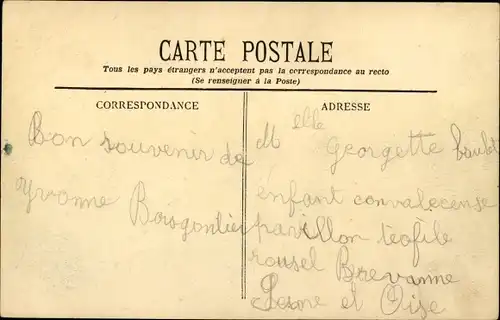 CARTE POSTALE
Tous les pays étrangers n'acceptent pas la correspondance au recto
(Se renseigner à la Poste)
CORRESPONDANCE
Bon souvenir de
Yvonne
ADRESSE
Melle Georgette
enfant convalecense
pavillon téofile
rousel Brevanne
Seine et Oise